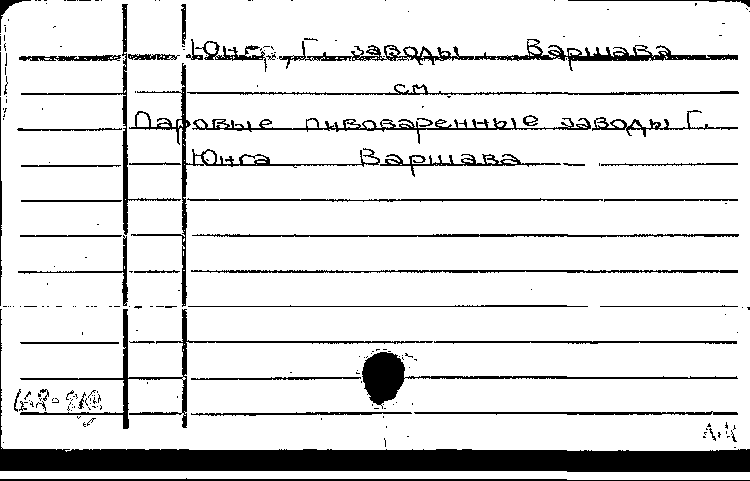 Юнга, Г. заводы. Варшава
см.
Паровые пивоваренные заводы Г.
Юнга Варшава
А.К